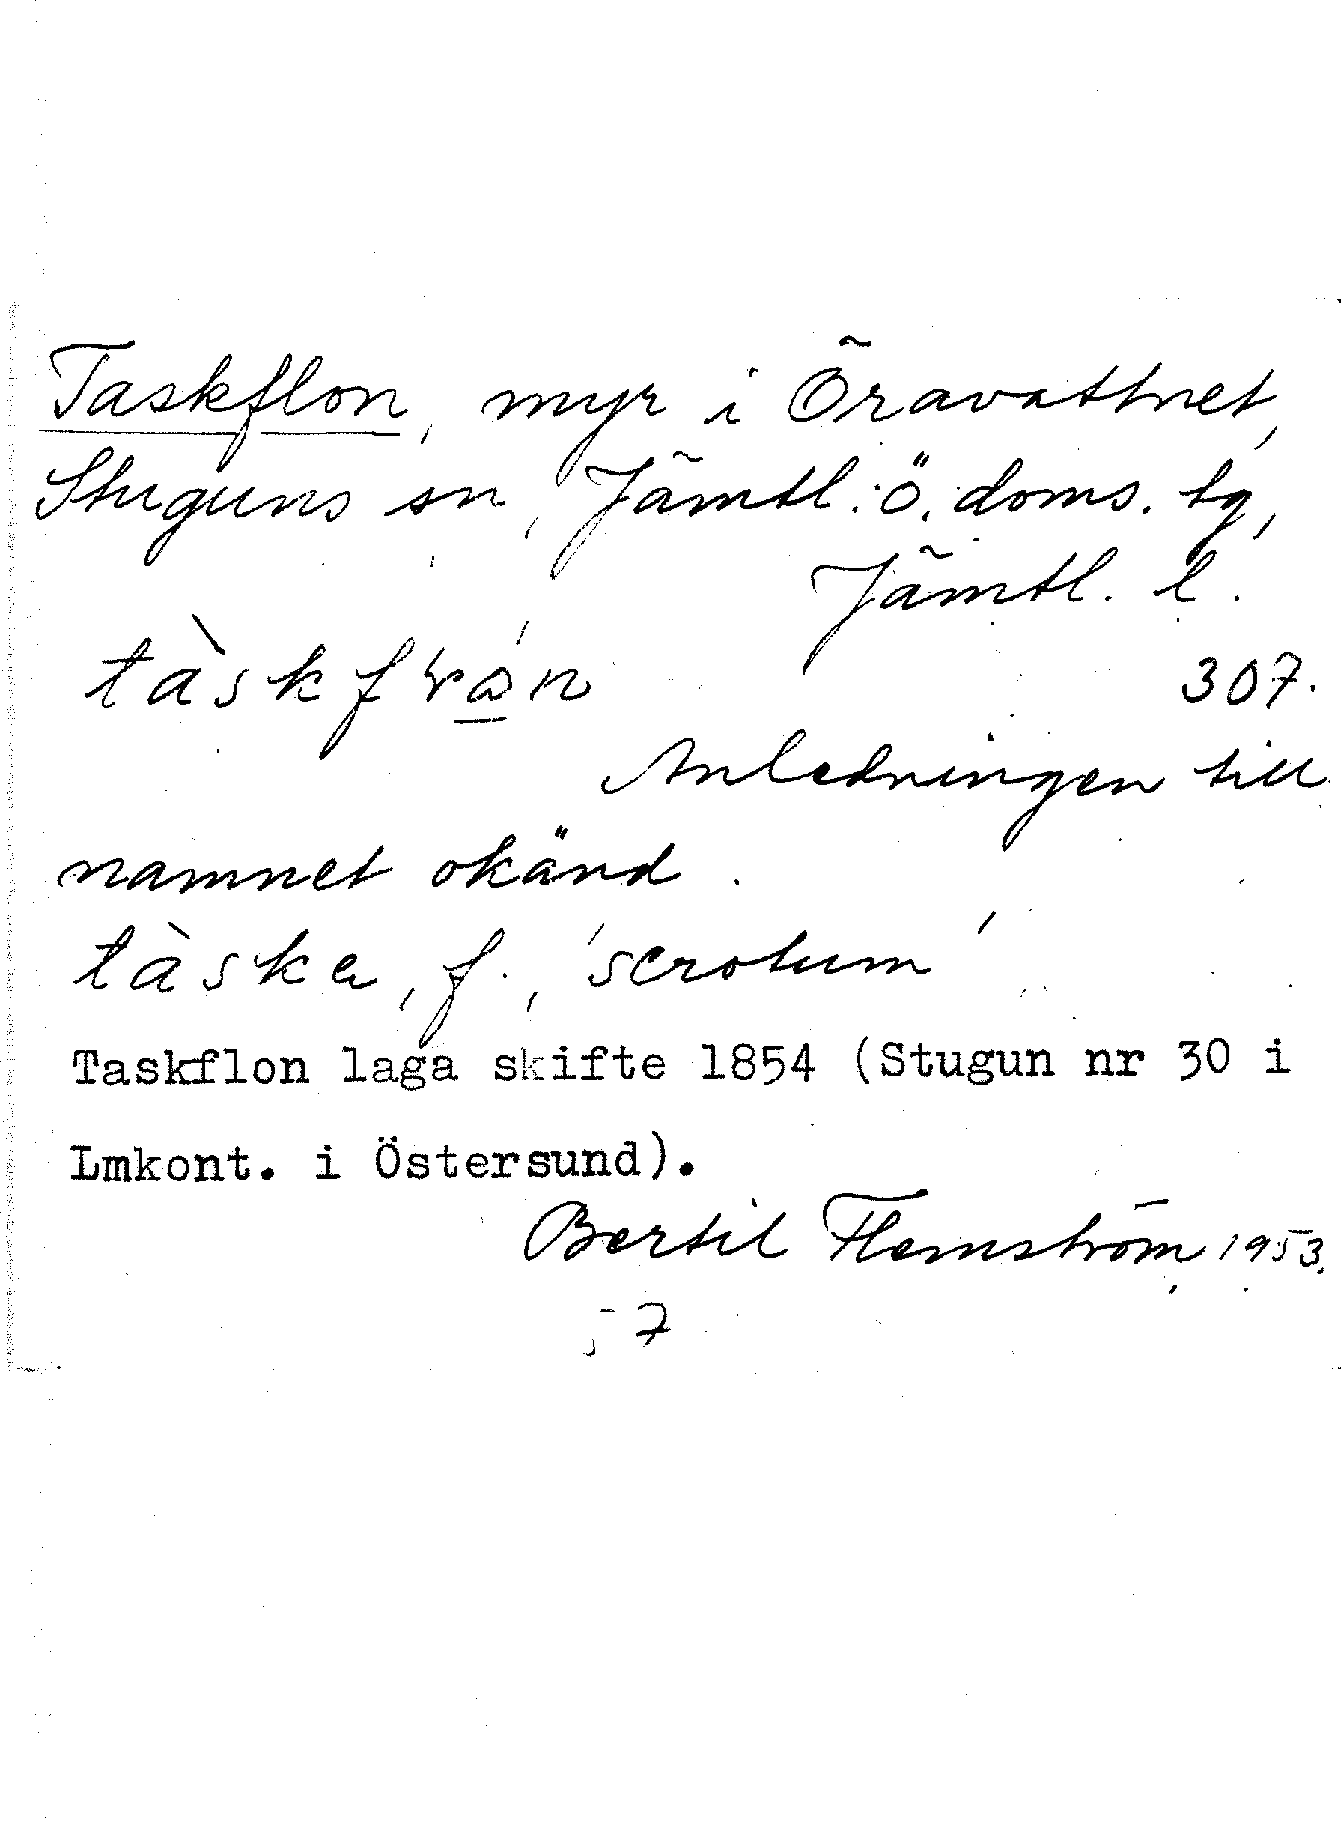 Taskflon, myr i Öravattnet,
Stuguns sn, Jämtl. ö. doms. tg,
Jämtl. l.
307.
Anledningen till
namnet okänd.
tàska, f., 'scrotum'
Taskflon laga skifte 1854 (Stugun nr 30 i
Lmkont. i Östersund).
Bertil Flemström 1953.